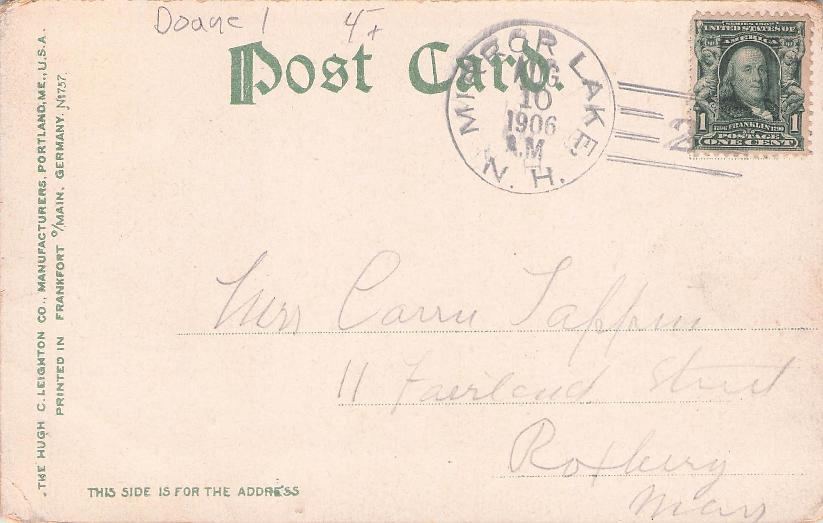 Doane 1 4+
Post Card.
MIRROR LAKE
AUG
10
1906
A.M
N. H.
2
SERIES 1902
UNITED STATES OF
AMERICA
1 1706 FRANKLIN 1790 1
POSTAGE
ONE CENT
THE HUGH C. LEIGHTON CO., MANUFACTURERS, PORTLAND, ME., U.S.A.
PRINTED IN FRANKFORT O/MAIN, GERMANY. No 757
Miss Carrie Tappin
11 Fairland Street
Roxbury
Mass
THIS SIDE IS FOR THE ADDRESS